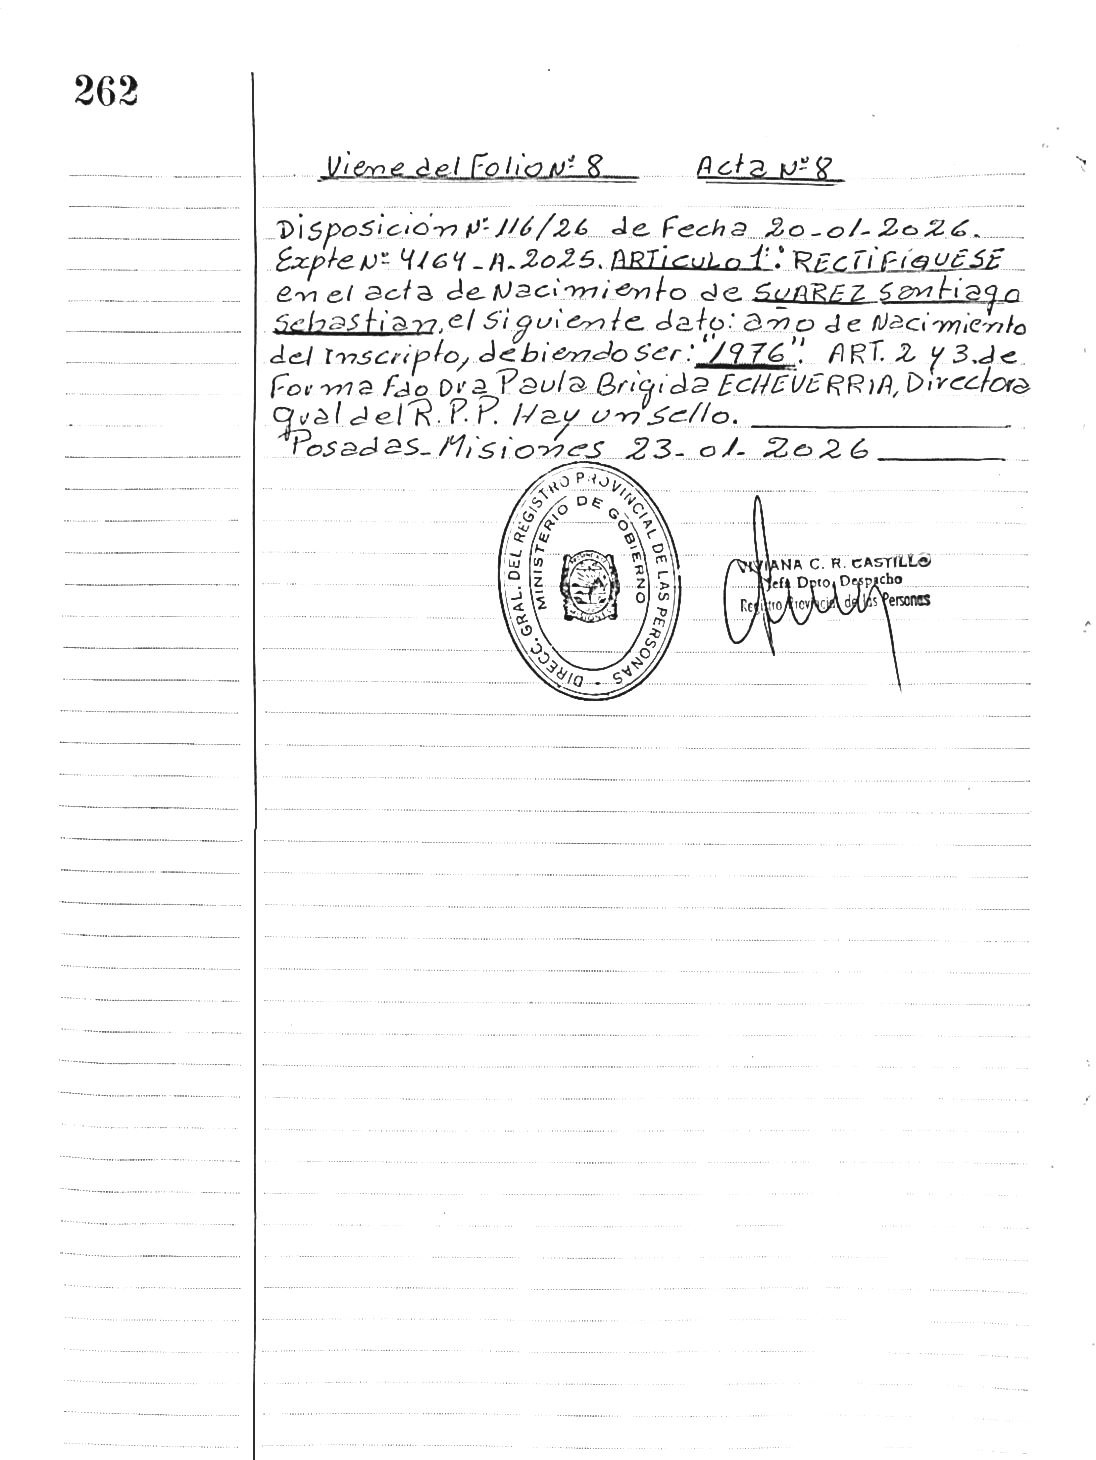 262
Viene del Folio Nº 8 Acta Nº 8
Disposición Nº 116/26 de Fecha 20-01-2026.
Expte Nº 4164-A-2025. ARTiCULO 1º: RECTiFíQUESE
en el acta de Nacimiento de SUAREZ Santiago
Sebastian, el siguiente dato: año de Nacimiento
del Inscripto, debiendo ser: "1976". ART. 2 y 3. de
Forma fdo Dra Paula Brigida ECHEVERRIA, Directora
gral del R.P.P. Hay un sello.
Posadas-Misiones 23-01-2026
DIRECC. GRAL. DEL REGISTRO PROVINCIAL DE LAS PERSONAS -
MINISTERIO DE GOBIERNO
VIVIANA C. R. CASTILLO
Jefa Dpto. Despacho
Registro Provincial de las Personas